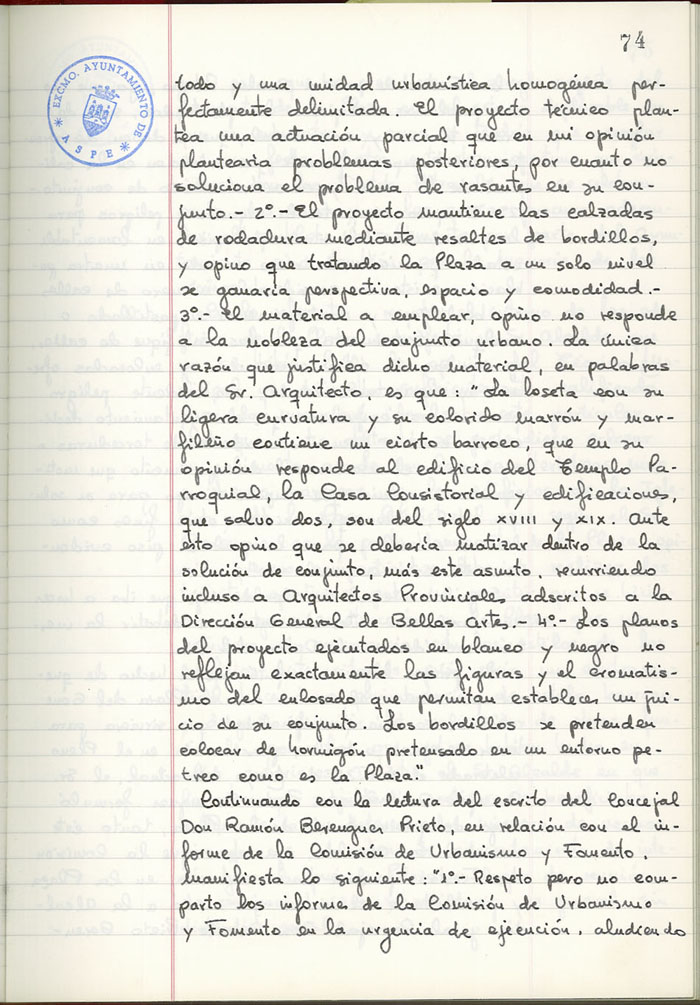 74
EXCMO. AYUNTAMIENTO DE
* ASPE *
todo y una unidad urbanística homogénea per-
fectamente delimitada. El proyecto técnico plan-
tea una actuación parcial que en mi opinión
plantearia problemas posteriores, por cuanto no
soluciona el problema de rasantes en su con-
junto.- 2º.- El proyecto mantiene las calzadas
de rodadura mediante resaltes de bordillos,
y opino que tratando la Plaza a un solo nivel
se ganaría perspectiva, espacio y comodidad.-
3º.- El material a emplear, opino no responde
a la nobleza del conjunto urbano. La única
razón que justifica dicho material, en palabras
del Sr. Arquitecto, es que: "La loseta con su
ligera curvatura y su colorido marrón y mar-
fileño contiene un cierto barroco, que en su
opinión responde al edificio del Templo Pa-
rroquial, la Casa Consistorial y edificaciones,
que salvo dos, son del siglo XVIII y XIX. Ante
esto opino que se debería matizar dentro de la
solución de conjunto, más este asunto, recurriendo
incluso a Arquitectos Provinciales adscritos a la
Dirección General de Bellas Artes.- 4º.- Los planos
del proyecto ejecutados en blanco y negro no
reflejan exactamente las figuras y el cromatis-
mo del enlosado que permitan establecer un jui-
cio de su conjunto. Los bordillos se pretenden
colocar de hormigón pretensado en un entorno pe-
treo como es la Plaza."
Continuando con la lectura del escrito del Concejal
Don Ramón Berenguer Prieto, en relación con el in-
forme de la Comisión de Urbanismo y Fomento,
manifiesta lo siguiente: "1º.- Respeto pero no com-
parto los informes de la Comisión de Urbanismo
y Fomento en la urgencia de ejecución, aludiendo